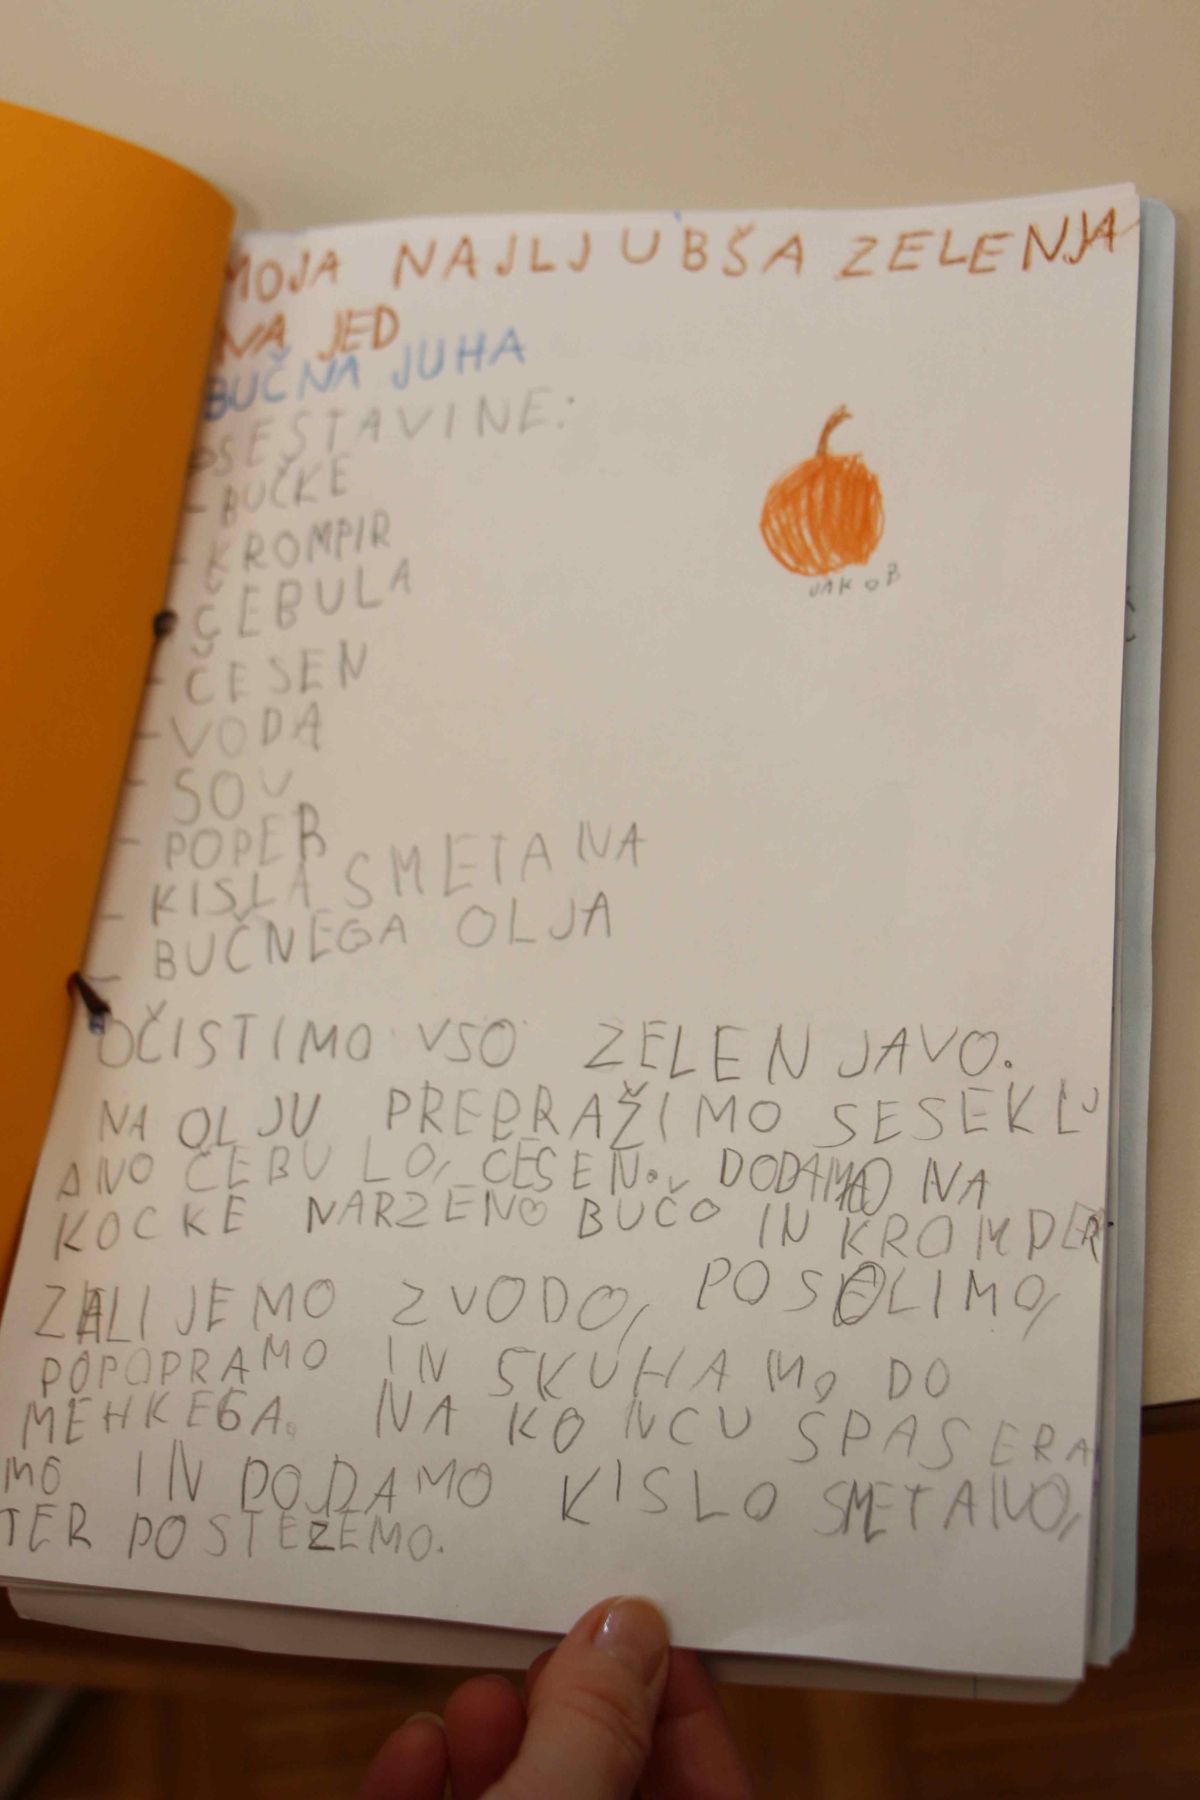 MOJA NAJLJUBŠA ZELENJA
VA JED
BUČNA JUHA
SESTAVINE:
- BUČKE
- KROMPIR
- ČEBULA
- ČESEN
- VODA
- SOU
- POPER
- KISLA SMETANA
- BUČNEGA OLJA
JAKOB
OČISTIMO VSO ZELENJAVO.
NA OLJU PREPRAŽIMO SESEKLJ
ANO ČEBULO, ČESEN. DODAMO NA
KOCKE NARZENO BUČO IN KROMPER
ZALIJEMO ZVODO, POSOLIMO,
POPOPRAMO IN SKUHAMO DO
MEHKEGA. NA KONCU SPASERA
MO IN DODAMO KISLO SMETANO,
TER POSTEZEMO.